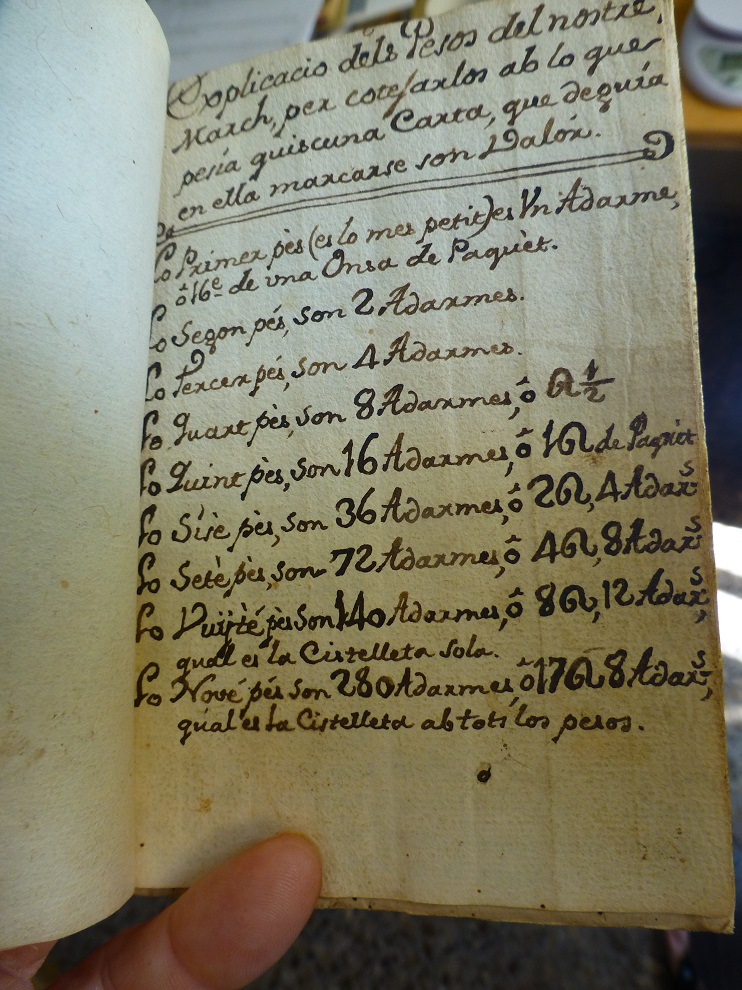 Explicacio dels Pesos del nostre
March, per cotejarlos ab lo que
pesía quiscuna Carta, que deguía
en ella marcarse son Valór.
Lo Primer pès (es lo mes petit) es Vn Adarme,
ô 16ᵉ de vna Onsa de Paquèt.
Lo Segon pés, son 2 Adarmes.
Lo Tercer pés, son 4 Adarmes.
Lo Quart pès, son 8 Adarmes, ô ℥ 1/2
Lo Quint pès, son 16 Adarmes, ô 1℥ de Paquet
Lo Sisè pès, son 36 Adarmes, ô 2℥, 4 Adarˢ
Lo Setè pès, son 72 Adarmes, ô 4℥, 8 Adarˢ
Lo Vuÿté pès Son 140 Adarmes, ô 8℥, 12 Adarˢ,
qual es la Cistelleta sola.
Lo Nové pés son 280 Adarmes, ô 17℥ 8 Adarˢ,
qual es la Cistelleta ab tots los pesos.